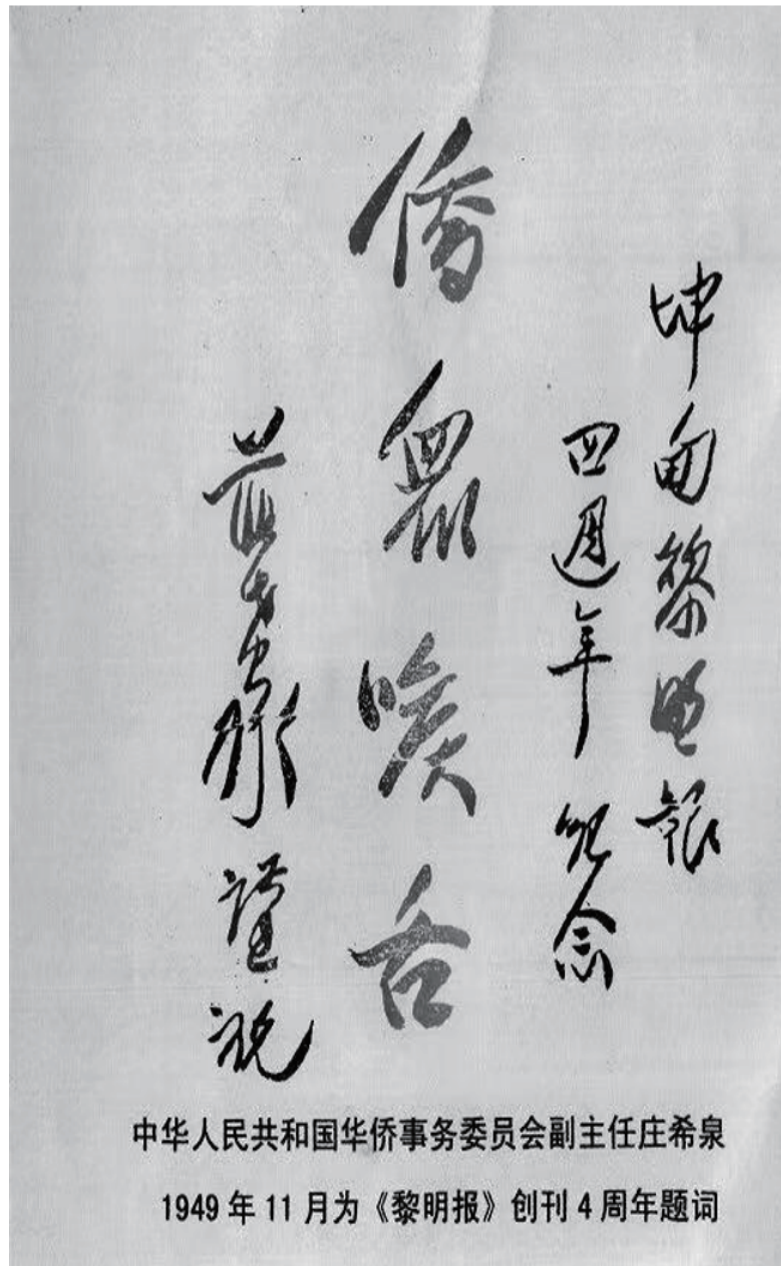 坤甸黎明報
四週年紀念
僑眾喉舌
莊希泉謹祝
中华人民共和国华侨事务委员会副主任庄希泉
1949年11月为《黎明报》创刊4周年题词